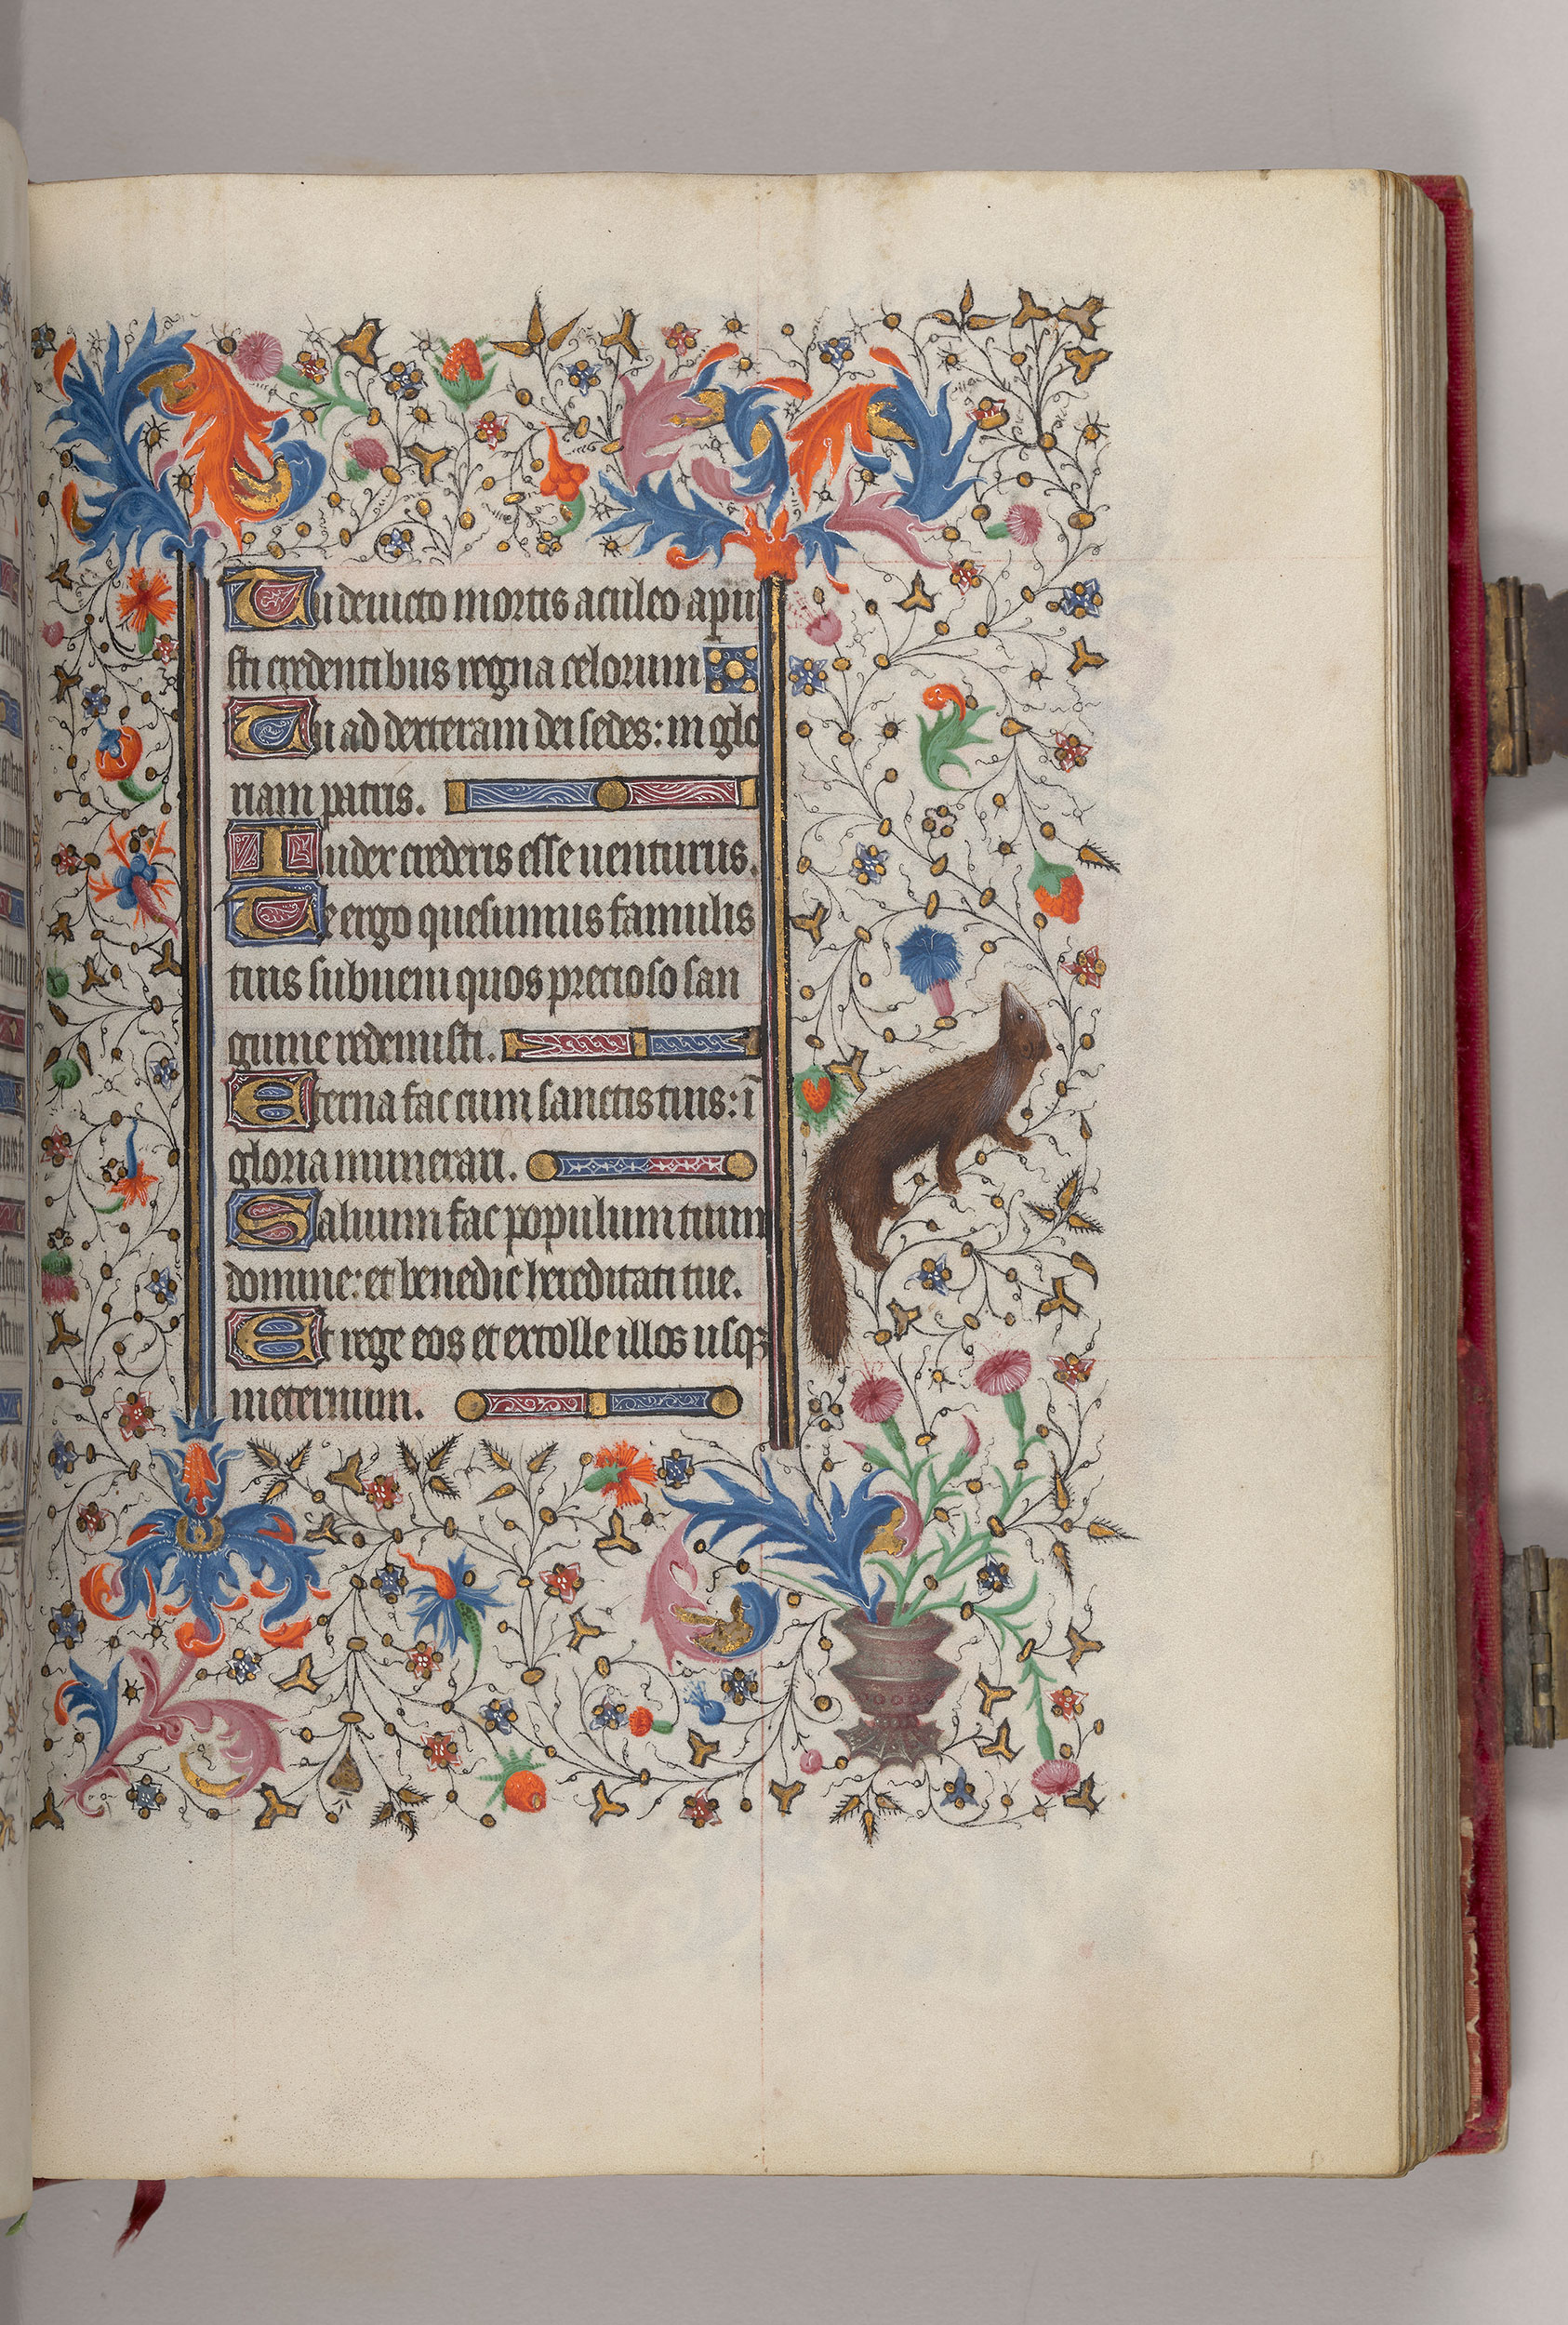 39
Tu deuicto mortis aculeo apui
sti credentibus regna celorum
Tu ad dexteram dei sedes: in glo
riam patris.
Iudex crederis esse uenturus.
Te ergo quesumus famulis
tuis subueni quos precioso san
guine redemisti.
Eterna fac cum sanctis tuis: ī
gloria munerari.
Saluum fac populum tuum
domine: et benedic hereditati tue.
Et rege eos et extolle illos usqꝫ
ineternum.